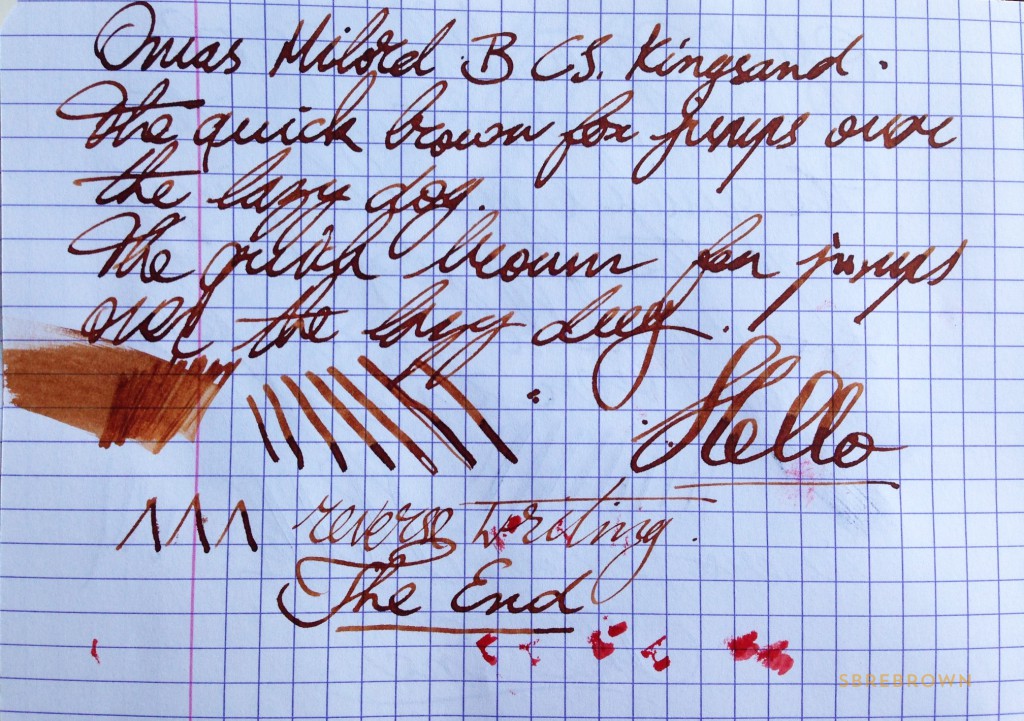 Omas Milord B CS. Kingsand.
The quick brown fox jumps over
the lazy dog.
The quick brown fox jumps
over the lazy dog.
Hello
reverse writing.
The End
SBREBROWN